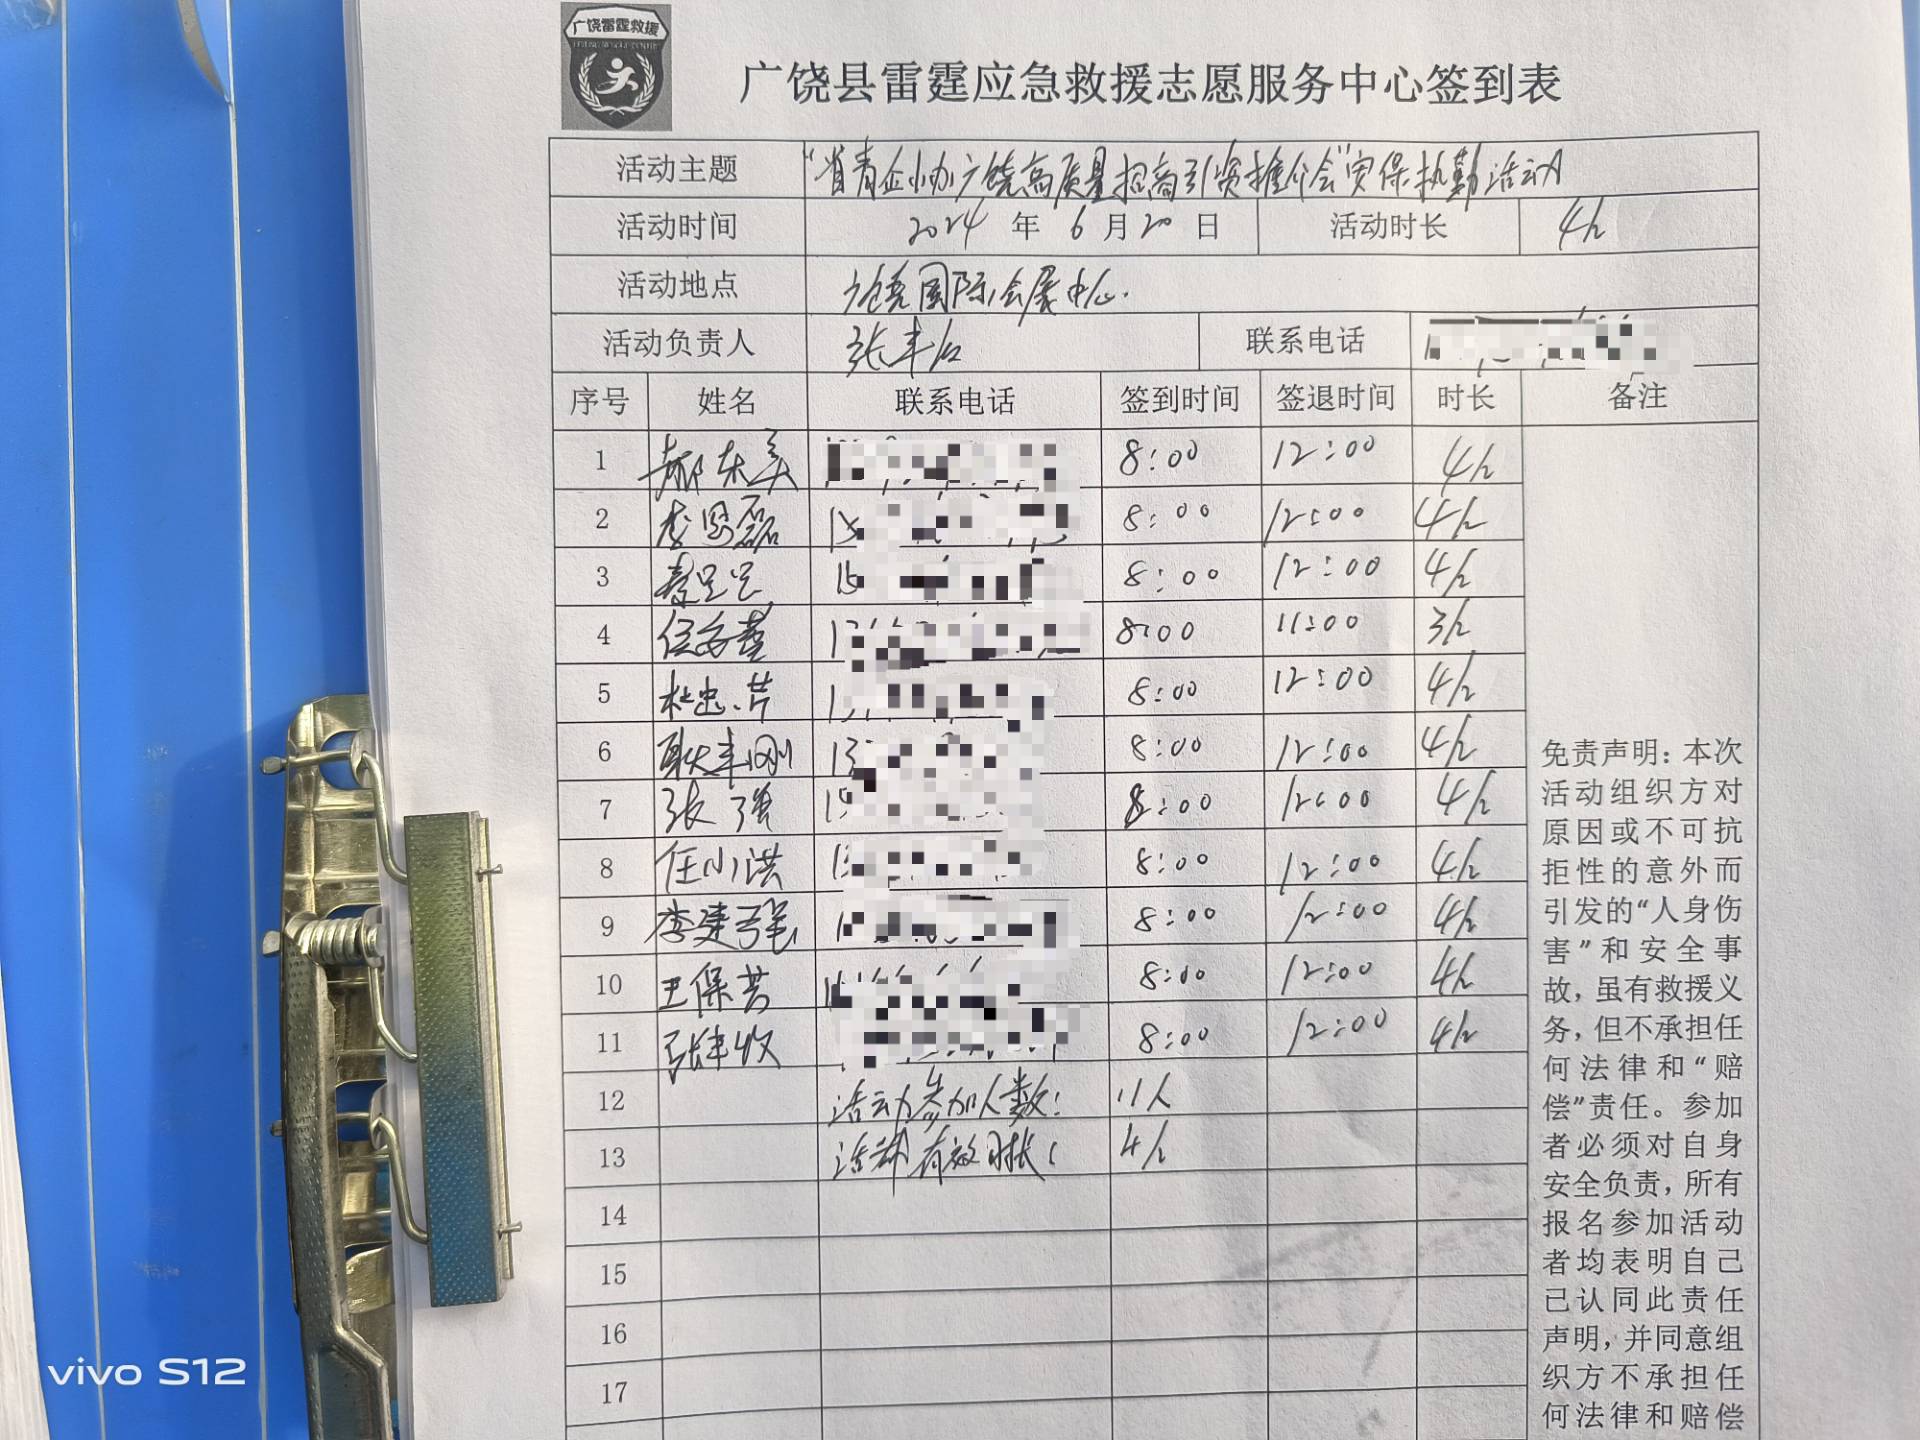 广饶雷霆救援
广饶县雷霆应急救援志愿服务中心签到表
活动主题 "省青企协广饶高质量招商引资推介会"安保执勤活动
活动时间 2024 年 6 月 20 日 活动时长 4h
活动地点 广饶国际会展中心.
活动负责人 张丰 联系电话
序号 姓名 联系电话 签到时间 签退时间 时长 备注
1 郝东美 8:00 12:00 4h
2 李 磊 15 8:00 12:00 4h
3 15 8:00 12:00 4h
4 13 8:00 11:00 3h
5 杜忠芹 13 8:00 12:00 4h
6 耿丰刚 13 8:00 12:00 4h
7 张强 15 8:00 12:00 4h
8 任小洪 13 8:00 12:00 4h
9 李建强 1 8:00 12:00 4h
10 王保芳 1 8:00 12:00 4h
11 张 收 8:00 12:00 4h
12 活动参加人数: 11人
13 活动有效时长: 4h
14
15
16
17
免责声明:本次
活动组织方对
原因或不可抗
拒性的意外而
引发的“人身伤
害”和安全事
故,虽有救援义
务,但不承担任
何法律和“赔
偿”责任。参加
者必须对自身
安全负责,所有
报名参加活动
者均表明自己
已认同此责任
声明,并同意组
织方不承担任
何法律和赔偿
vivo S12